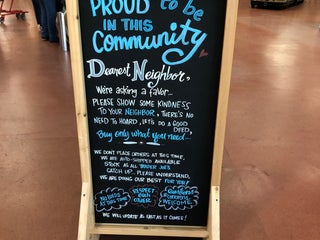 PROUD to be
IN THIS
Community
Dearest Neighbor,
We're asking a favor...
PLEASE SHOW SOME KINDNESS
TO YOUR NEIGHBOR, THERE'S NO
NEED TO HOARD, LET'S DO A GOOD
DEED,
Buy only what you need
WE DON'T PLACE ORDERS AT THIS TIME,
WE ARE AUTO-SHIPPED AVAILABLE
STOCK AS ALL TRADER JOE'S
CATCH UP. PLEASE UNDERSTAND,
WE ARE DOING OUR BEST FOR YOU!
NO
AT THIS TIME
RESPECT
each
OTHER
Questions
WELCOME
WE WILL UPDATE AS FAST AS IT COMES!